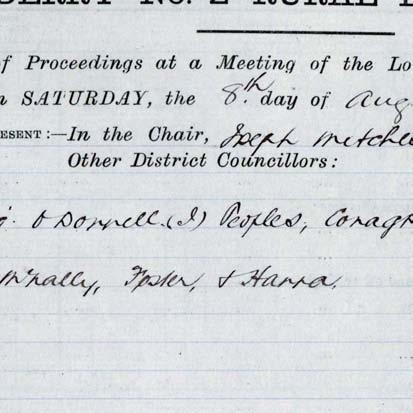 DERRY NO. 2 RURAL
of Proceedings at a Meeting of the Lo
n SATURDAY, the 8th day of Aug
ESENT :—In the Chair, Joseph Mitchel
Other District Councillors:
O'Donnell (J) Peoples, Conagh
McNally, Foster, & Hanna.